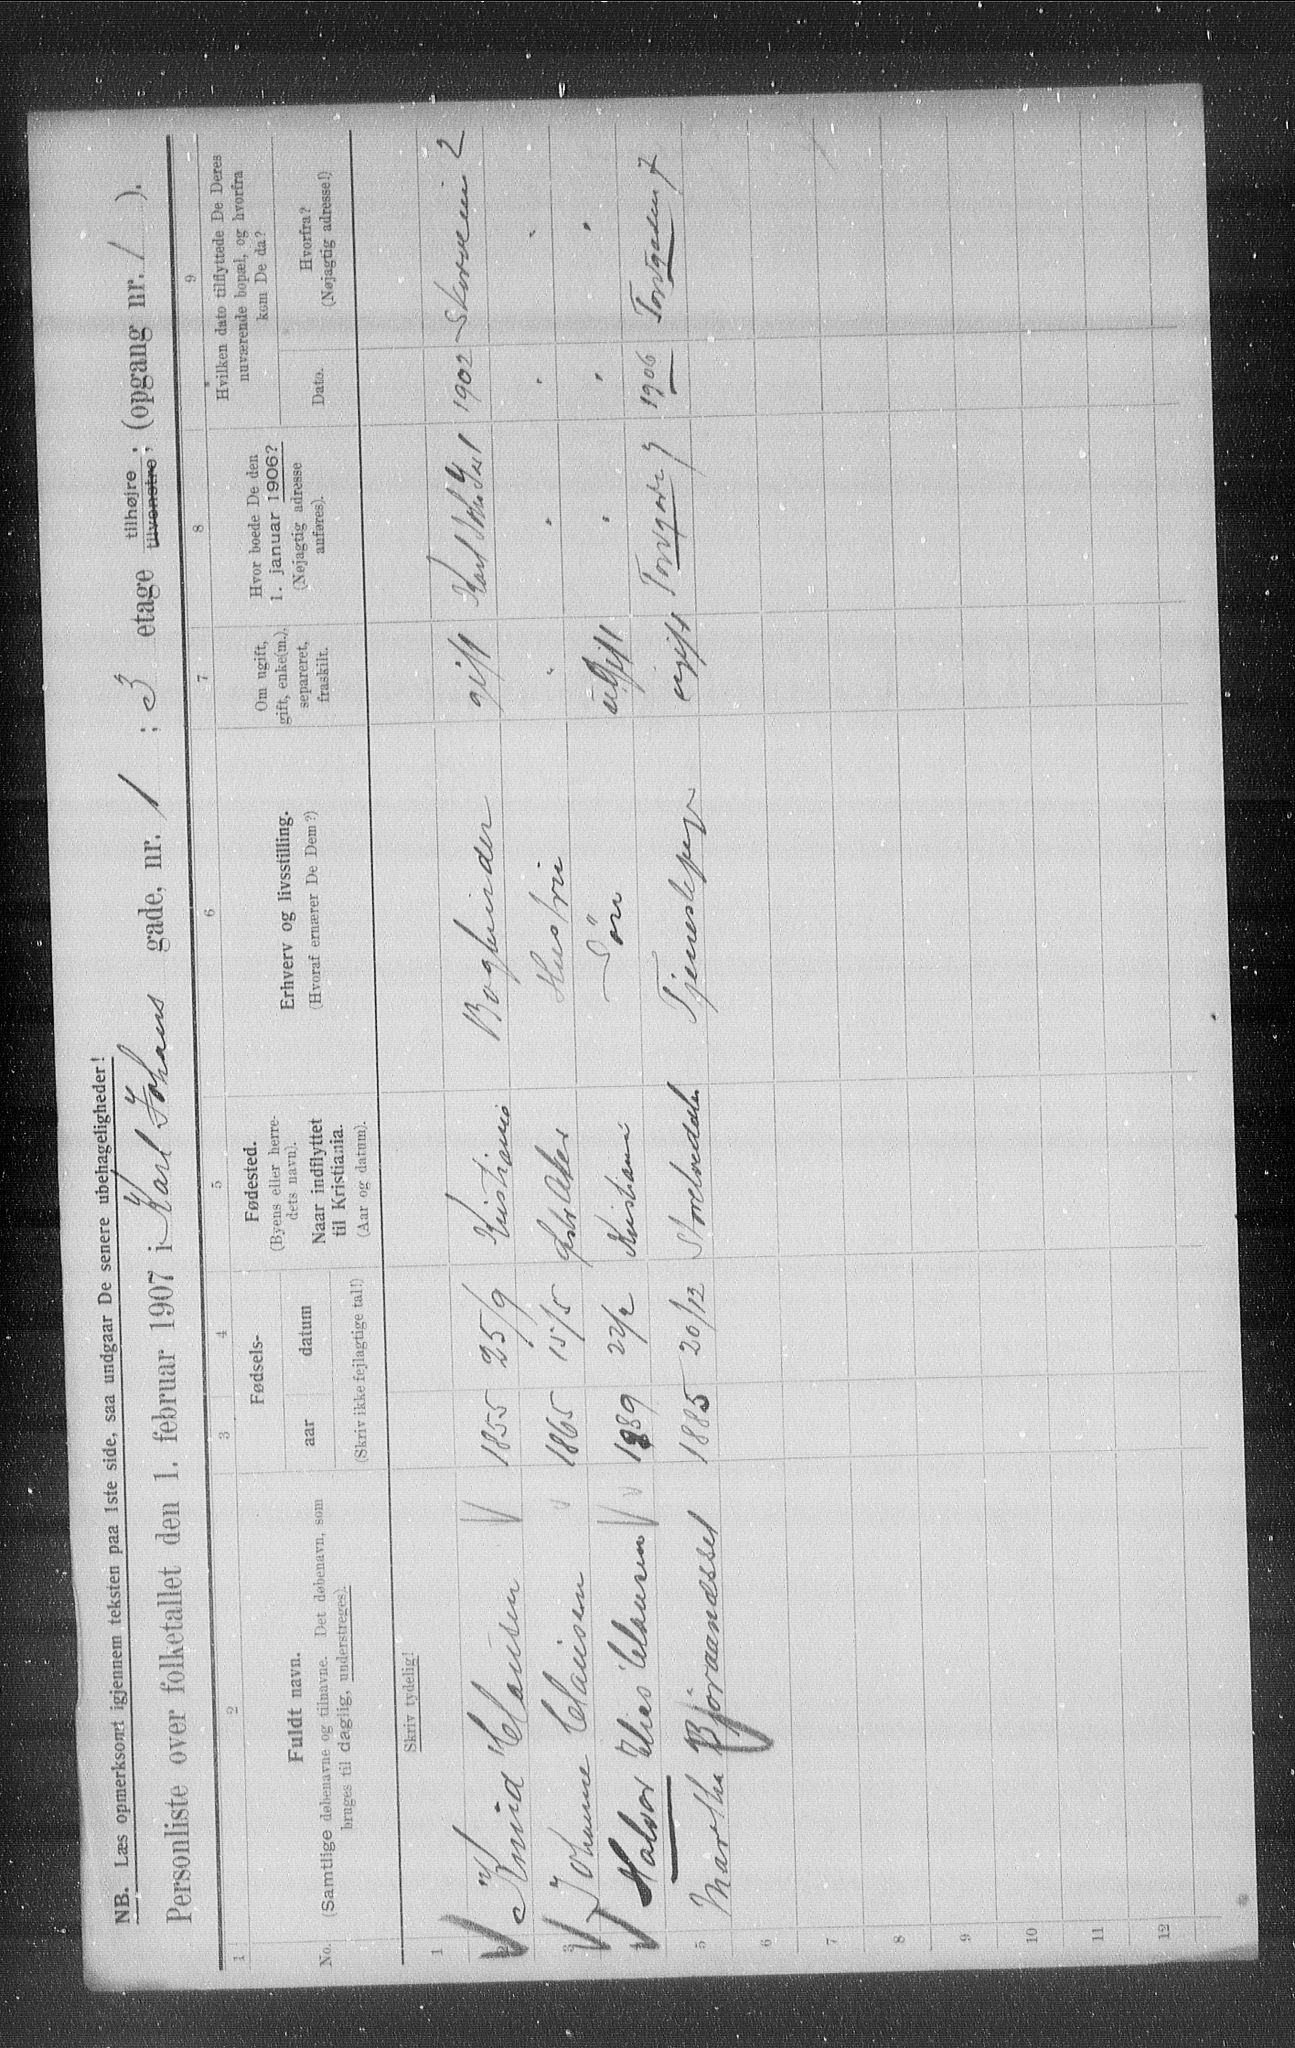 NB. Læs opmerksomt igjennem teksten paa 1ste side, saa undgaar De senere ubehageligheder!
Personliste over folketallet den 1. februar 1907 i Karl Johans gade, nr. 1 ; 3 etage tilhøjre, tilvenstre; (opgang nr. 1 ).
1 2 3 4 5 6 7 8 9
No.
Fuldt navn.
(Samtlige døbenavne og tilnavne. Det døbenavn, som
bruges til daglig, understreges).
Fødsels-
aar datum
(Skriv ikke fejlagtige tal!)
Fødested.
(Byens eller herre-
dets navn).
Naar indflyttet
til Kristiania.
(Aar og datum).
Erhverv og livsstilling.
(Hvoraf ernærer De Dem?)
Om ugift,
gift, enke(m.),
separeret,
fraskilt.
Hvor boede De den
1. januar 1906?
(Nøjagtig adresse
anføres).
Hvilken dato tilflyttede De Deres
nuværende bopæl, og hvorfra
kom De da?
Dato.
Hvorfra?
(Nøjagtig adresse!)
Skriv tydelig!
1
2 Knud Clausen 1855 25/9 Kristiania Bogbinder gift Karl Johs 1902 2
3 Johanne Clausen 1865 15/5 Aker Hustru " " " "
Halvor Elias Clausen 1889 22/2 Kristiania Søn ugift " " "
5 Martha Björaanesset 1885 20/12 Storelvedalen Tjenestepige ugift Torvgaden 7 1906 Torvgaden 7
6
7
8
9
10
11
12